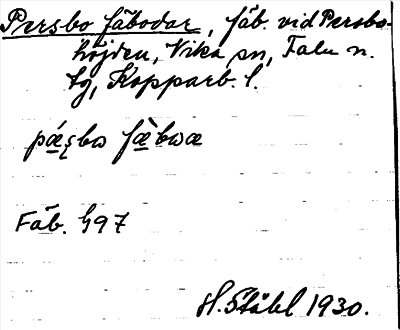 Persbo fäbodar, fäb. vid Persbo-
höjden, Vika sn, Falu n.
tg, Kopparb. l.
pǽʂbω fæ̀bωa
Fäb. 497
H. Ståhl 1930.